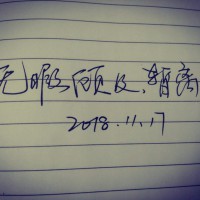 无暇顾及、
2018.11.17